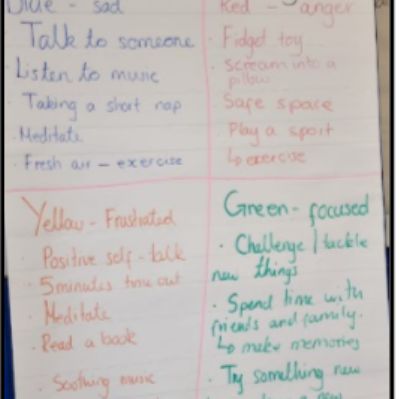 Blue - sad
Talk to someone
· Listen to music
· Taking a short nap
· Meditate
· Fresh air - exercise
Red - anger
· Fidget toy
· scream into a
pillow
· Safe space
· Play a sport
↳ exercise
Yellow - Frustrated
· Positive self-talk
· 5 minutes time out
· Meditate
· Read a book
· Soothing music
Green - focused
· Challenge / tackle
new things
· Spend time with
friends and family.
↳ make memories
· Try something new